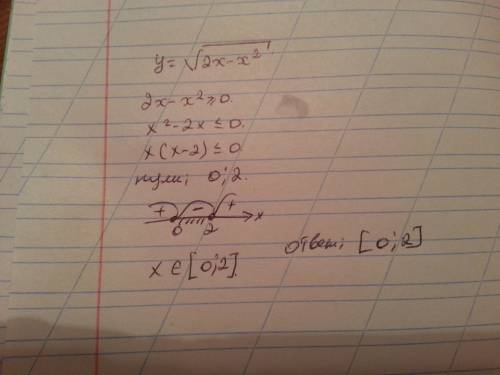 y = √(2x-x²)
2x-x² ≥ 0.
x²-2x ≤ 0.
x(x-2) ≤ 0
нули: 0; 2.
+ - + x
0 2
x ∈ [0; 2].
ответ: [0; 2]